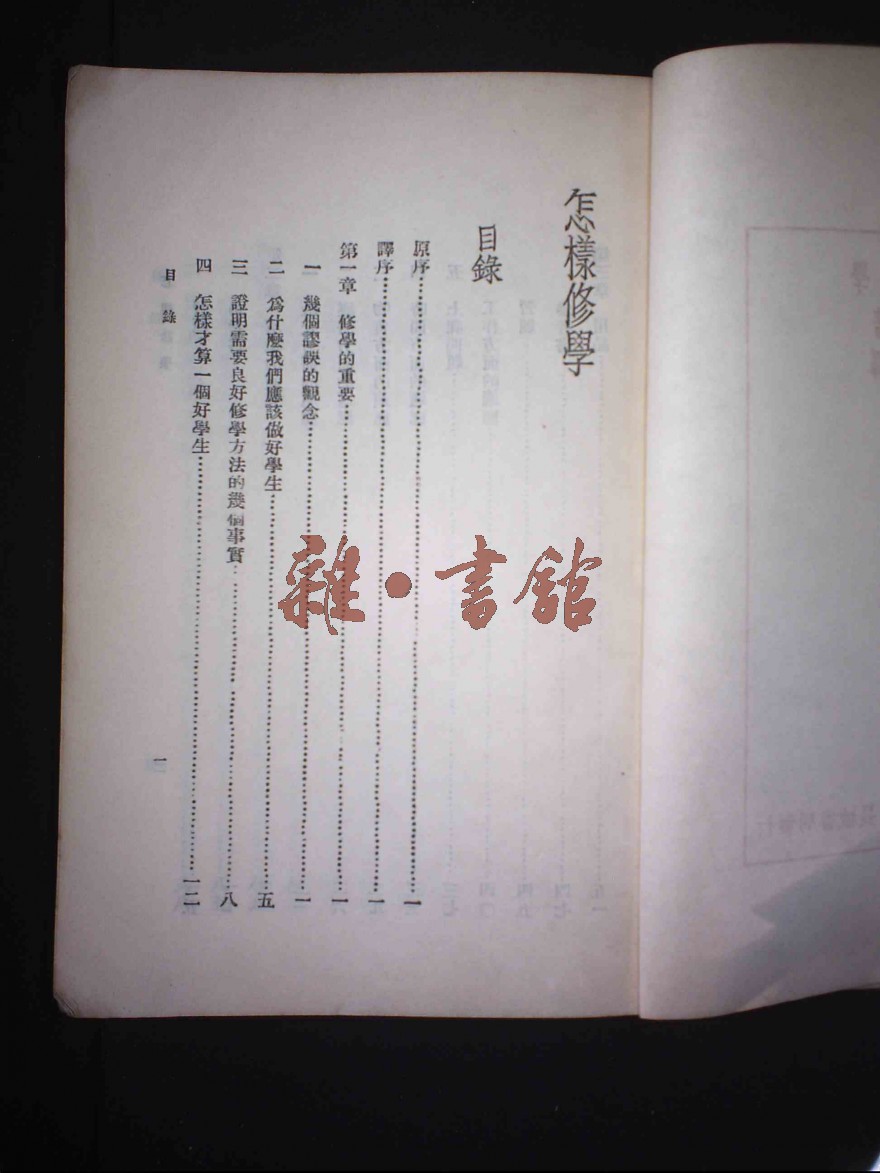 怎樣修學
目錄
原序……一
譯序……一
第一章 修學的重要……一
一 幾個謬誤的觀念……一
二 爲什麼我們應該做好學生……五
三 證明需要良好修學方法的幾個事實……八
四 怎樣才算一個好學生……一二
目錄
一
雜•書館